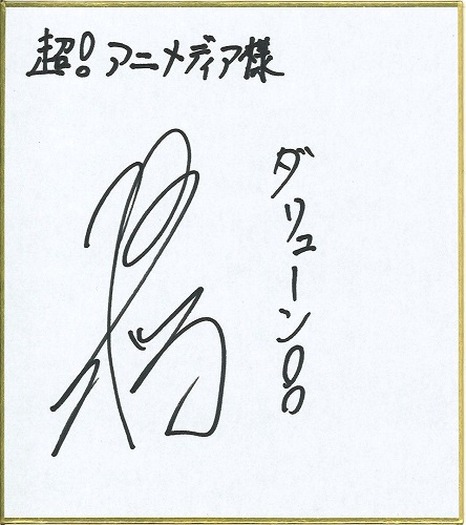 超!アニメディア様
ダリューン!!